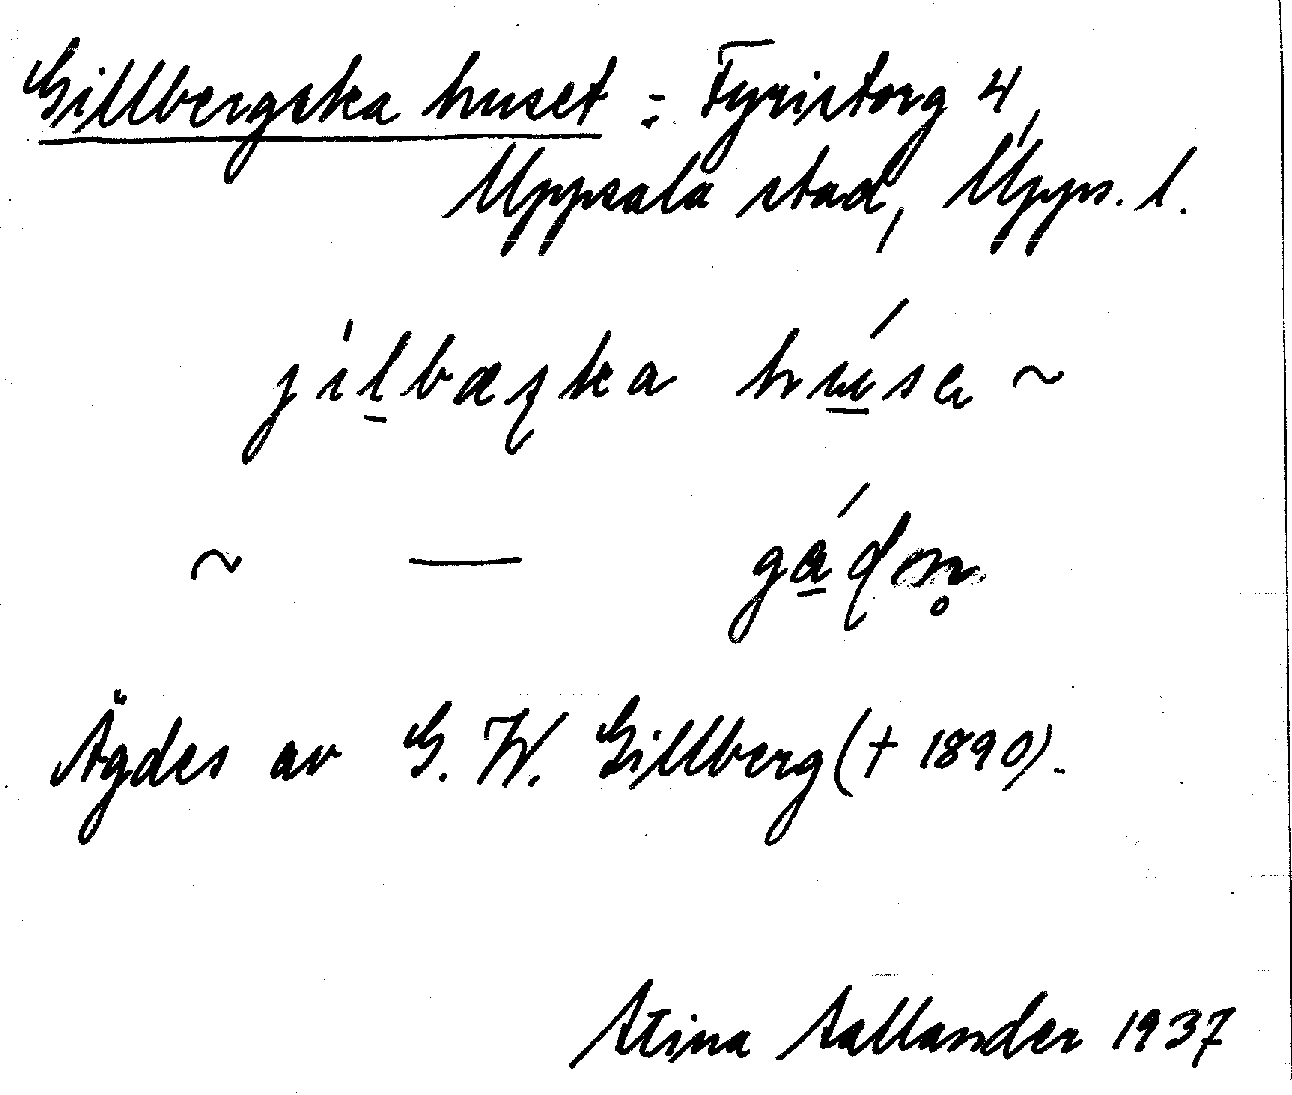 Gillbergska huset = Fyristorg 4,
Uppsala stad, Upps. l.
jílbæʂka hús ~
~ — gáɖn̥
Ägdes av G. W. Gillberg († 1890).
Stina 1937